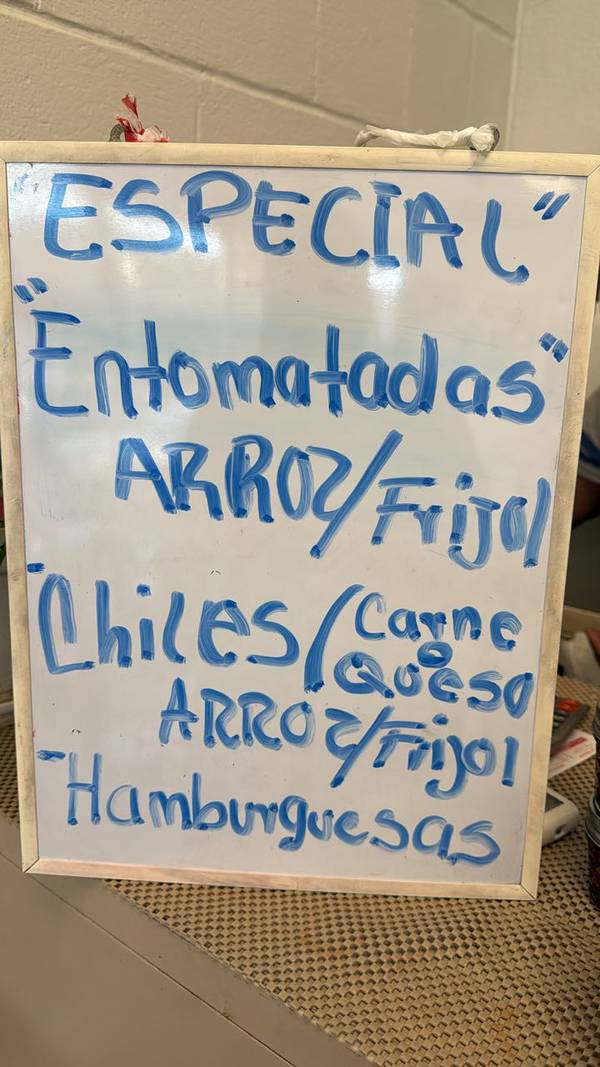 "ESPECIAL"
"Entomatadas"
ARROZ/Frijol
-Chiles/Carne
o
Queso
ARROZ/Frijol
-Hamburguesas